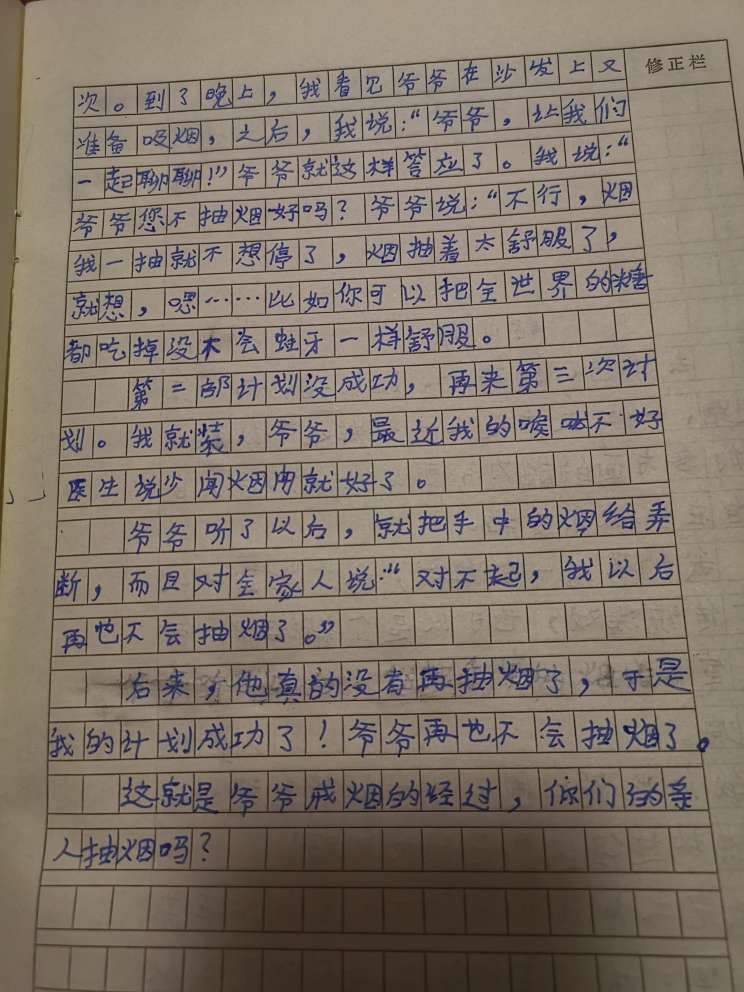 修正栏
次。到了晚上，我看见爷爷在沙发上又
准备吸烟，之后，我说：“爷爷，让我们
一起聊聊！”爷爷就这样答应了。我说：“
爷爷您不抽烟好吗？爷爷说：“不行，烟
我一抽就不想停了，烟抽着太舒服了，
就想，嗯……比如你可以把全世界的糖
都吃掉没木会蛀牙一样舒服。
第二部计划没成功，再来第三次计
划。我就装，爷爷，最近我的喉咙不好
医生说少闻烟闻就好了。
爷爷听了以后，就把手中的烟给弄
断，而且对全家人说：“对不起，我以后
再也不会抽烟了。”
右来，他真的没有再抽烟了，于是
我的计划成功了！爷爷再也不会抽烟了。
这就是爷爷戒烟的经过，你们的亲
人抽烟吗？